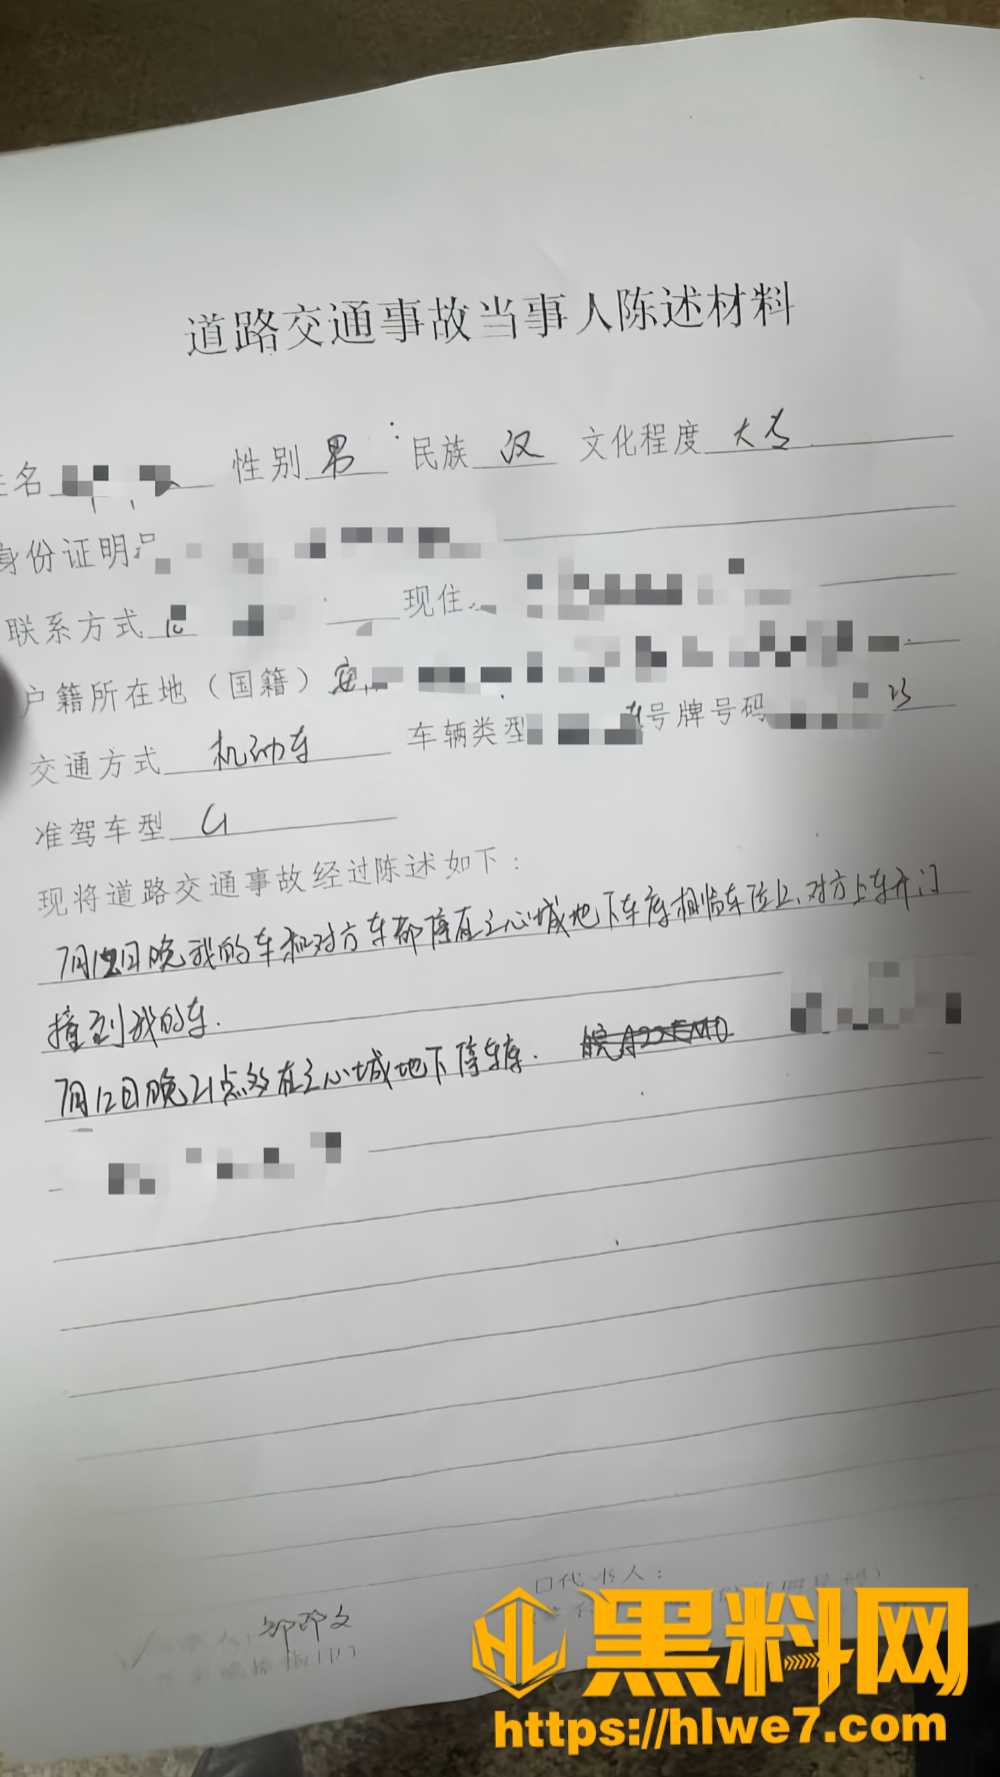 道路交通事故当事人陈述材料
名 性别 男 民族 汉 文化程度 大专
身份证明 户
联系方式 现住
户籍所在地（国籍） 安
交通方式 机动车 车辆类型 号牌号码
准驾车型 C1
现将道路交通事故经过陈述如下：
7月12日晚我的车和对方车都停在之心城地下车库相临车位上，对方上车开门
撞到我的车.
7月12日晚21点多在之心城地下停车库.
代书人：
黑料网
https://hlwe7.com